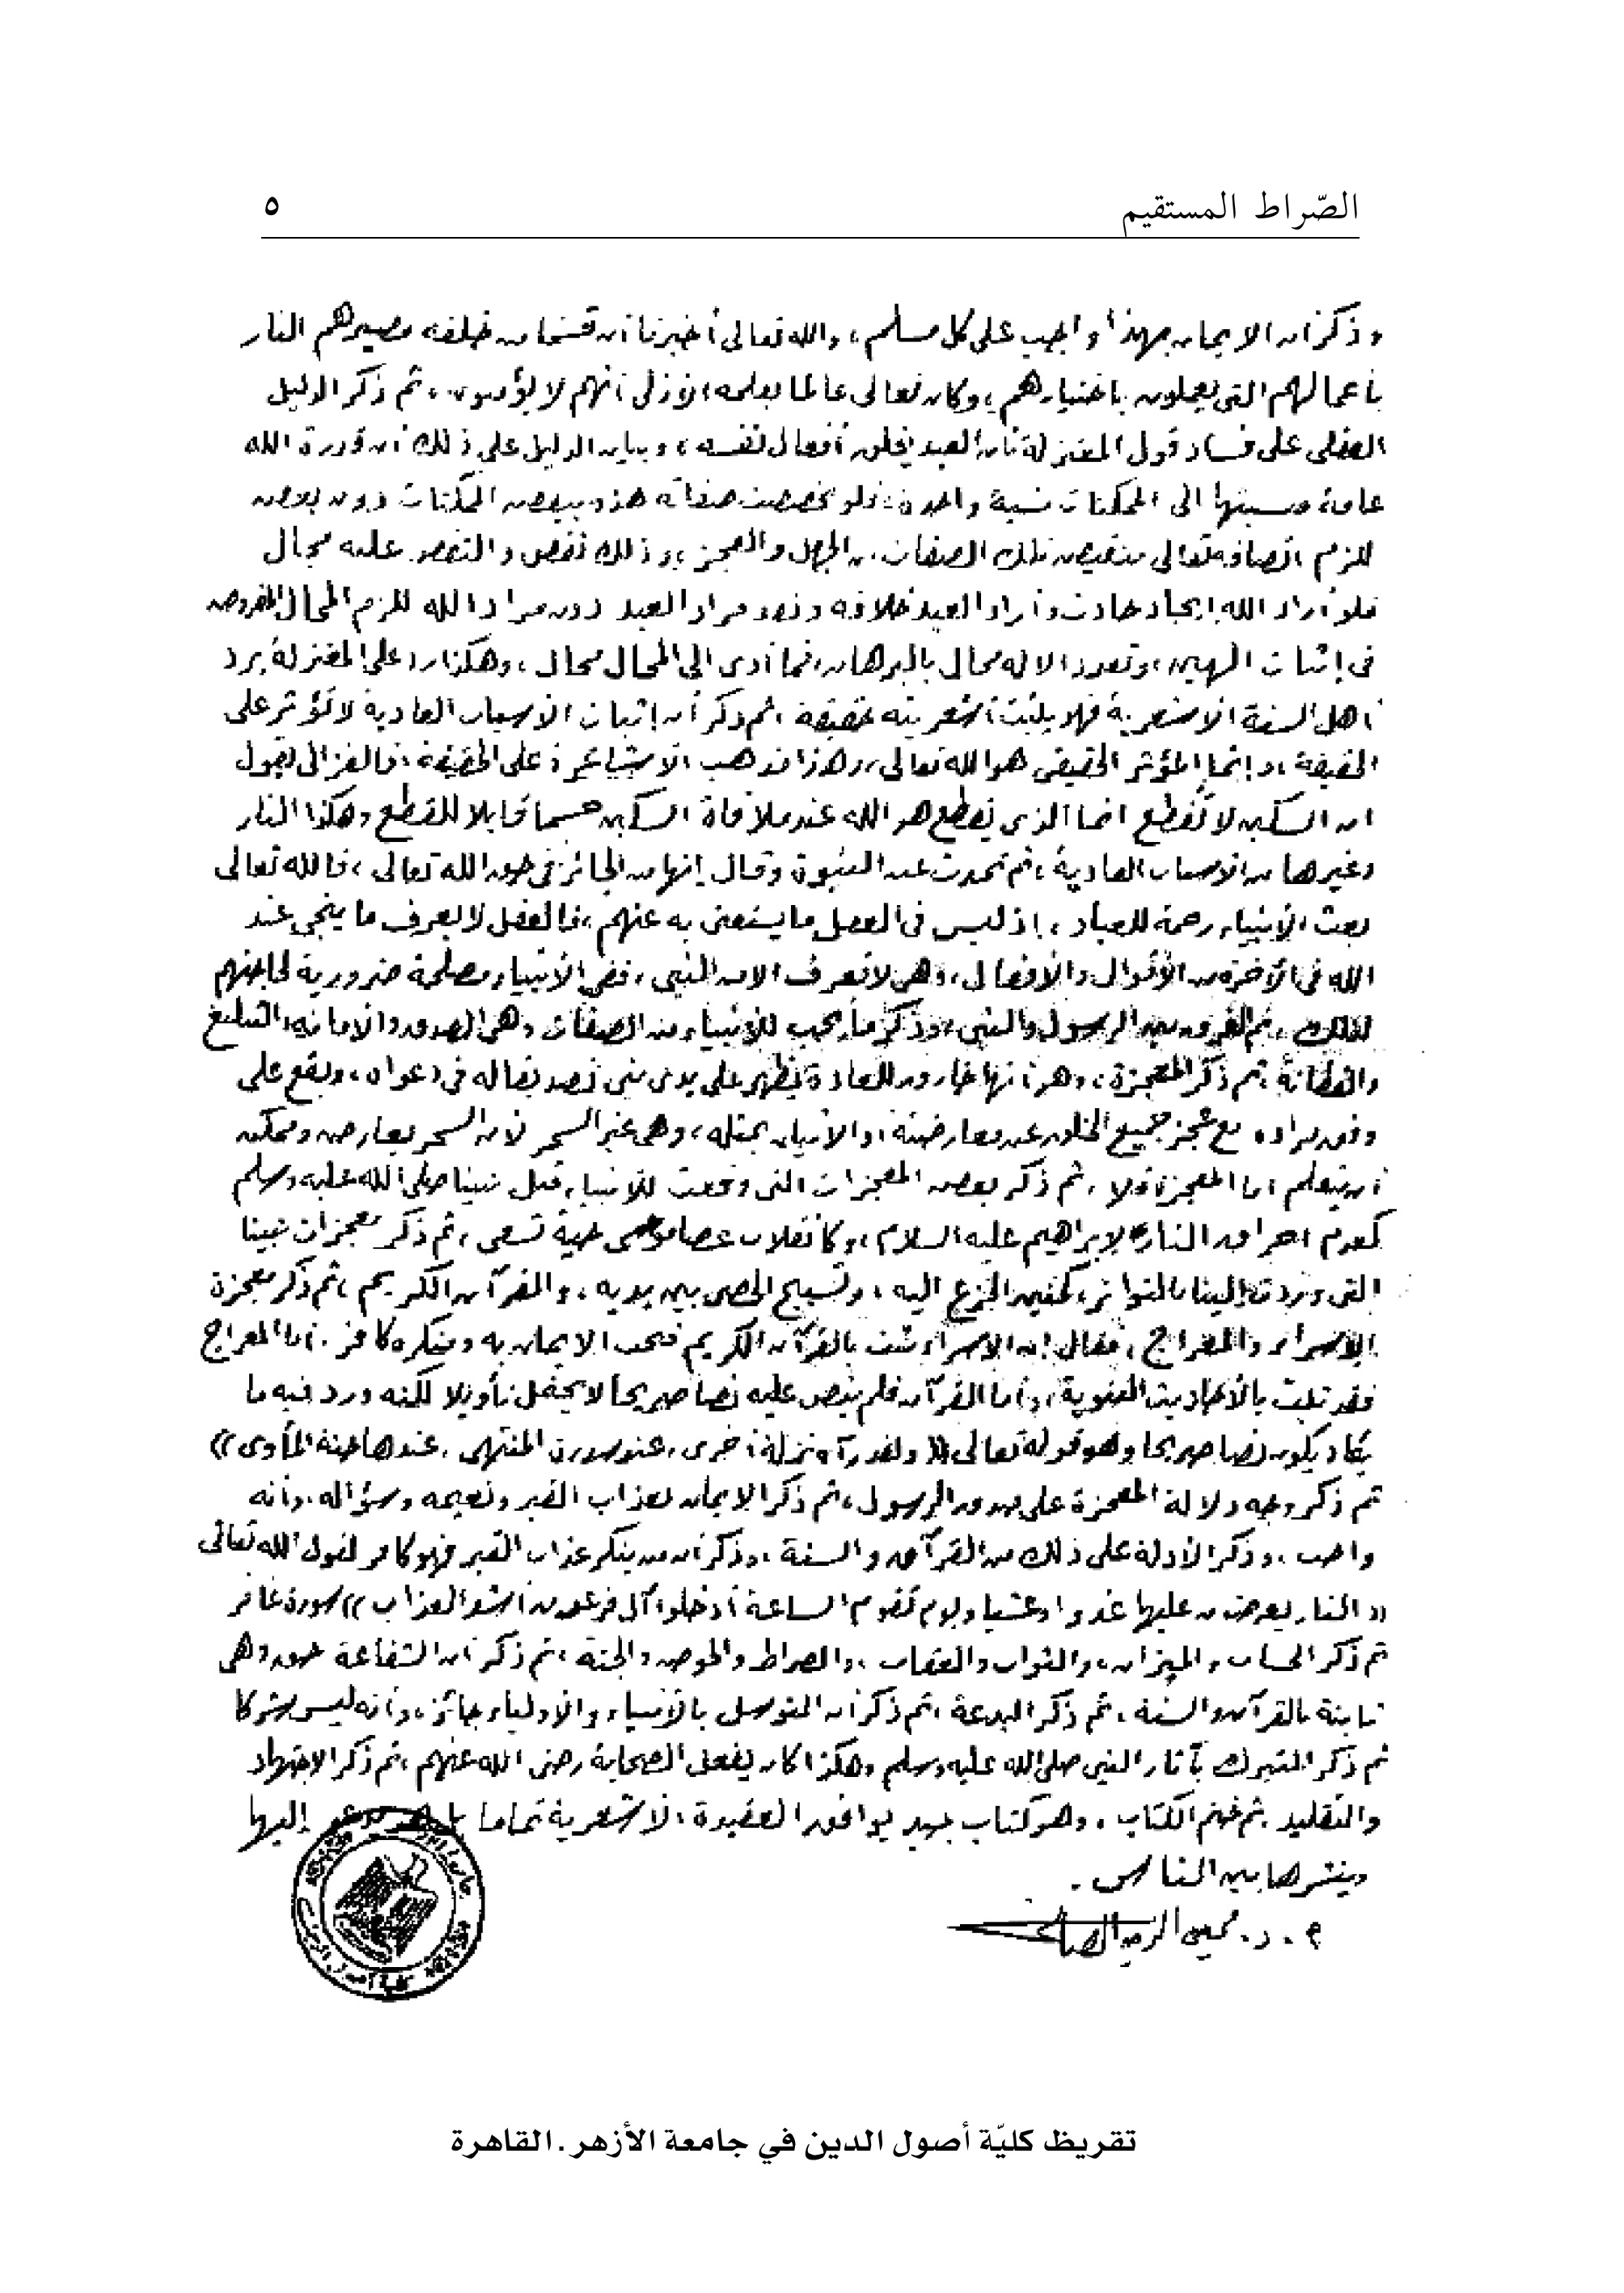 الصّراط المستقيم ٥
وذكر أن الإيمان بهذا واجب على كل مسلم، والله تعالى أخبرنا أن قسما من خلقه مصيرهم النار
بأعمالهم التي يعملون باختيارهم، وكان تعالى عالما بعلمه الأزلي أنهم لا يؤمنون، ثم ذكر الدليل
العقلي على فساد قول المعتزلة بأن العبد يخلق أفعال نفسه، وبيان الدليل على ذلك أن قدرة الله
عامة ونسبتها الى الممكنات نسبة واحدة، فلو تخصصت صفاته هذه ببعض الممكنات دون بعض
للزم اتصافه تعالى بنقيض تلك الصفات من الجهل والعجز، وذلك نقص والنقص عليه محال
فلو أراد الله إيجاد حادث وأراد العبد خلافه ونفذ مراد العبد دون مراد الله للزم المحال المفروض
فى إثبات إلهين، وتعدد الإله محال بالبرهان، فما أدى الى المحال محال، وهكذا رد على المعتزلة برد
أهل السنة الأشعرية فهو يثبت أشعريته حقيقة، ثم ذكر أن إثبات الأسباب العادية لا تؤثر على
الحقيقة، وإنما المؤثر الحقيقى هو الله تعالى، وهذا مذهب الأشاعرة على الحقيقة، فالغزالى يقول
ان السكين لا تقطع انما الذى يقطع هو الله عند ملاقاة السكين جسما قابلا للقطع وهكذا النار
وغيرها من الأسباب العادية، ثم تحدث عن النبوة وقال إنها من الجائز فى حق الله تعالى، فالله تعالى
بعث الأنبياء رحمة للعباد، إذ ليس فى العقل ما يستغنى به عنهم، فالعقل لا يعرف ما ينجى عند
الله فى الآخرة من الأقوال والأفعال، وهى لا تعرف الا من النبى، ففى الأنبياء مصلحة ضرورية لحاجتهم
لذلك، ثم الفرق بين الرسول والنبى، وذكر ما يجب للأنبياء من الصفات وهى الصدق والأمانة والتبليغ
والفطانة، ثم ذكر المعجزة، وهى أنها خارق للعادة يظهر على يدى نبى تصديقا له فى دعواه، ويقع على
وفق مراده مع عجز جميع الخلق عن معارضته، والاتيان بمثله، وهى غير السحر لأن السحر يعارض وممكن
أن يتعلم اما المعجزة فلا، ثم ذكر بعض المعجزات التى وقعت للأنبياء قبل نبينا صلى الله عليه وسلم
كعدم احراق النار لإبراهيم عليه السلام، وكانقلاب عصا موسى حية تسعى، ثم ذكر معجزات نبينا
التى وردت إلينا بالتواتر، كحنين الجزع اليه، وتسبيح الحصى بين يديه، والقرآن الكريم، ثم ذكر معجزة
الإسراء والمعراج، فقال إن الإسراء ثبت بالقرآن الكريم فيجب الايمان به ومنكره كافر. أما المعراج
فقد ثبت بالأحاديث النبوية، وأما القرآن فلم ينص عليه نصا صريحا لا يحتمل تأويلا لكنه ورد فيه ما
يكاد يكون نصا صريحا وهو قوله تعالى (( ولقد رآه نزلة أخرى، عند سدرة المنتهى، عندها جنة المأوى ))
ثم ذكر وجه دلالة المعجزة على صدق الرسول، ثم ذكر الايمان بعذاب القبر ونعيمه وسؤاله، وأنه
واجب، وذكر الأدلة على ذلك من القرآن والسنة، وذكر أن من ينكر عذاب القبر فهو كافر لقول الله تعالى
(( النار يعرضون عليها غدوا وعشيا ويوم تقوم الساعة أدخلوا آل فرعون أشد العذاب )) سورة غافر
ثم ذكر الحساب والميزان، والثواب والعقاب، والصراط والحوض والجنة، ثم ذكر أن الشفاعة حق وهى
ثابتة بالقرآن والسنة، ثم ذكر البدعة، ثم ذكر أن التوسل بالأنبياء والأولياء جائز، وأنه ليس شركا
ثم ذكر التبرك بآثار النبى صلى الله عليه وسلم وهكذا كان يفعل الصحابة رضى الله عنهم، ثم ذكر الاجتهاد
والتقليد. ثم ختم الكتاب. وهو كتاب جيد يوافق العقيدة الأشعرية تماما بل هو يدعو إليها
وينشرها بين الناس.
أ. د. محيى الدين الصافى
تقريظ كليّة أصول الدين في جامعة الأزهر. القاهرة